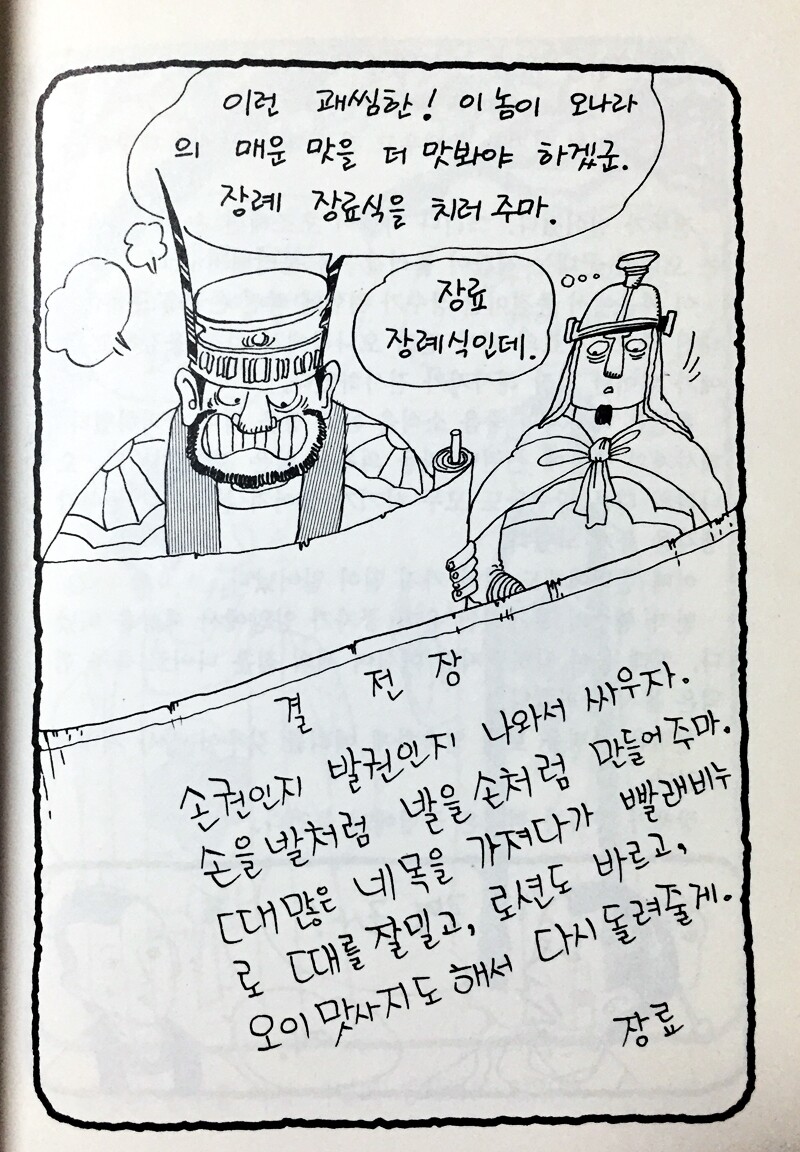 이런 괘씸한! 이 놈이 오나라
의 매운 맛을 더 맛봐야 하겠군.
장례 장료식을 치러 주마.
장료
장례식인데.
결 전 장
손권인지 발권인지 나와서 싸우자.
손을 발처럼 발을 손처럼 만들어주마.
때많은 네 목을 가져다가 빨래비누
로 때를 잘밀고, 로션도 바르고,
오이 맛사지도 해서 다시 돌려줄게.
장료